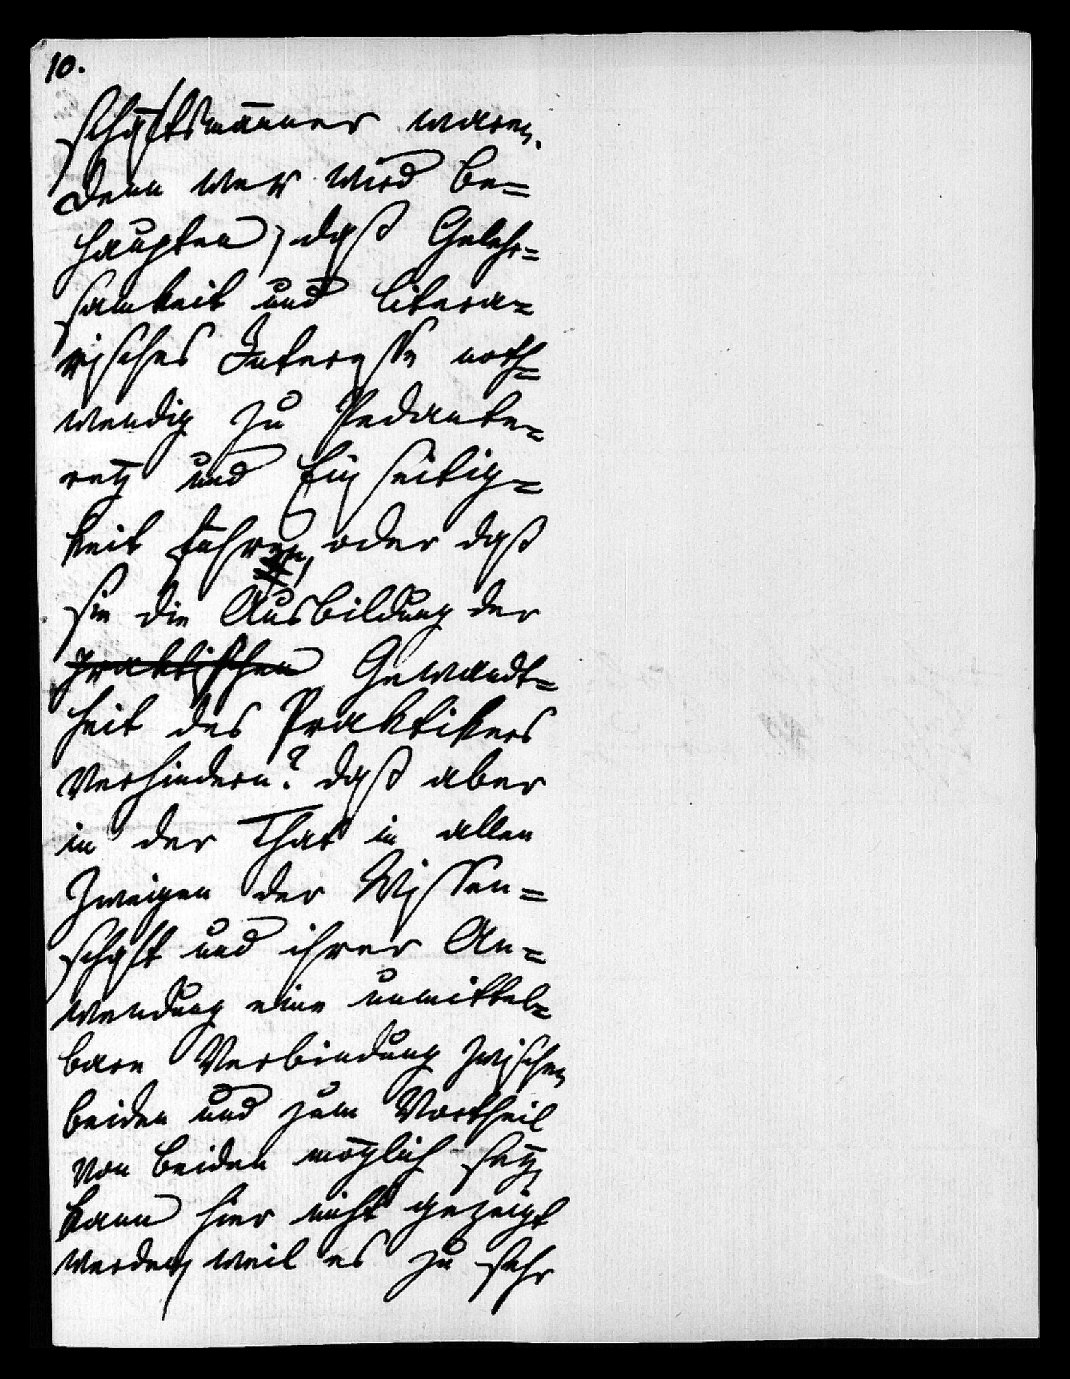 10.
schäftsmänner waren.
Denn wer wird be=
haupten, daß Gelehr=
samkeit und litera=
risches Interesse noth=
wendig zu Pedante=
rey und Einseitig=
keit führen, oder daß
sie die Ausbildung der
praktischen Gewandt=
heit des Praktikers
verhindern? daß aber
in der That in allen
Zweigen der Wissen=
schaft und ihrer An=
wendung eine unmittel=
bare Verbindung zwischen
beiden und zum Vortheil
von beiden möglich sey,
kann hier nicht gezeigt
werden, weil es zu sehr